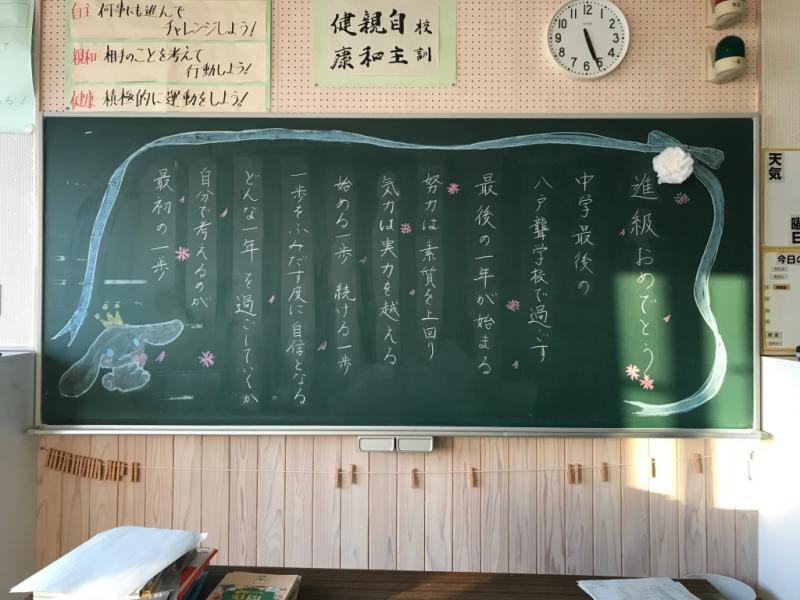 自主 何事にも進んで
チャレンジしよう!
親和 相手のことを考えて
行動しよう!
健康 積極的に運動をしよう!
校訓
自主
親和
健康
進級おめでとう
中学最後の
八戸聾学校で過ごす
最後の一年が始まる
努力は素質を上回り
気力は実力を越える
始める一歩 続ける一歩
一歩をふみだす度に自信となる
どんな一年を過ごしていくか
自分で考えるのが
最初の一歩
天気
曜日
今日の
12
1
2
3
4
5
6
7
8
9
10
11